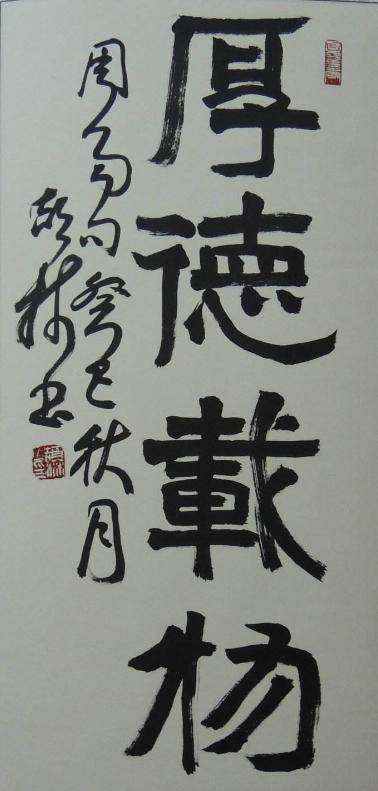 厚德載物
周易句癸巳秋月
林書